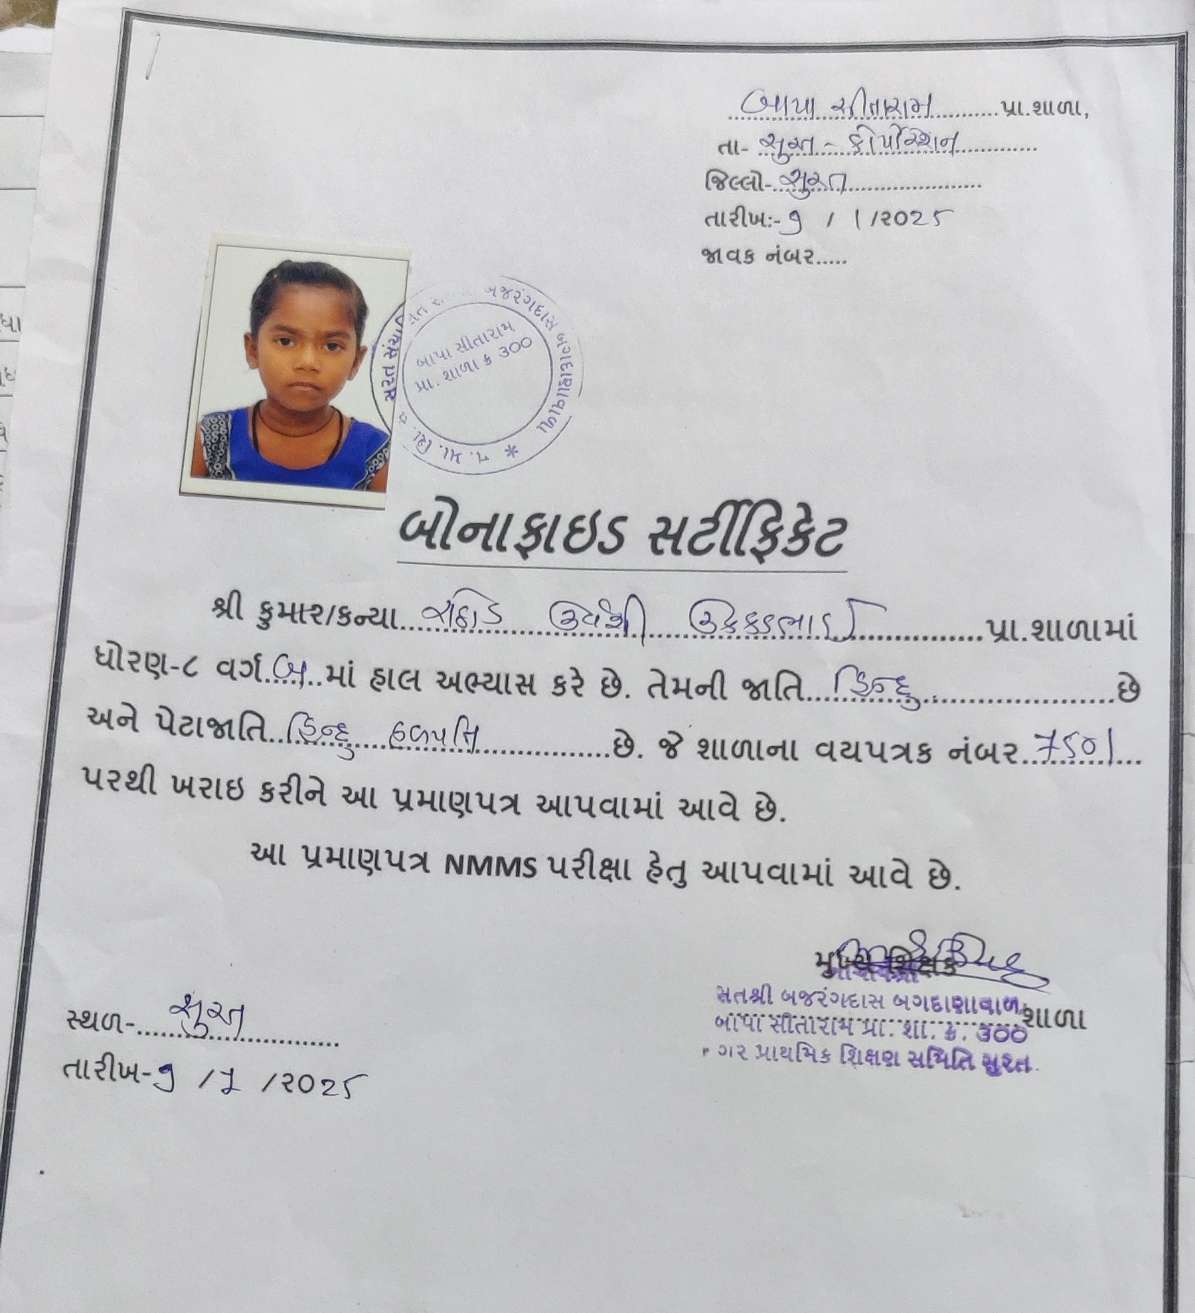 બાપા સીતારામ પ્રા.શાળા,
તા- સુરત - કોર્પોરેશન
જિલ્લો- સુરત
તારીખ:- ૭ / ૧ /૨૦૨૫
જાવક નંબર.....
બજરંગદાસ બગદાણાવાળા
બાપા સીતારામ
પ્રા. શાળા ક્ર ૩૦૦
સુરત સંચાલિત
ન. પ્રા. શિ. સ.
બોનાફાઇડ સર્ટીફિકેટ
શ્રી કુમાર/કન્યા રાઠોડ ઉર્વશી પ્રા.શાળામાં
ધોરણ-૮ વર્ગ બ માં હાલ અભ્યાસ કરે છે. તેમની જાતિ હિન્દુ છે
અને પેટાજાતિ હિન્દુ હળપતિ છે. જે શાળાના વયપત્રક નંબર
પરથી ખરાઇ કરીને આ પ્રમાણપત્ર આપવામાં આવે છે.
આ પ્રમાણપત્ર NMMS પરીક્ષા હેતુ આપવામાં આવે છે.
મુખ્ય શિક્ષક
આચાર્યશ્રી
સતશ્રી બજરંગદાસ બગદાણાવાળા શાળા
બાપા સીતારામ પ્રા. શા. ક્ર. ૩૦૦
નગર પ્રાથમિક શિક્ષણ સમિતિ સુરત.
સ્થળ- સુરત
તારીખ- ૭ / ૧ /૨૦૨૫